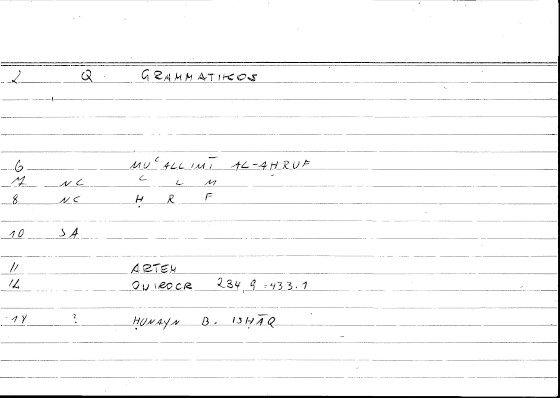 2 Q GRAMMATIKOS
6 MUʿALLIMĪ AL-AḤRUF
7 NC ʿ L M
8 NC Ḥ R F
10 SA
11 ARTEM
12 ONIROCR 234,9-433.1
14 ? ḤUNAYN B. ISḤĀQ